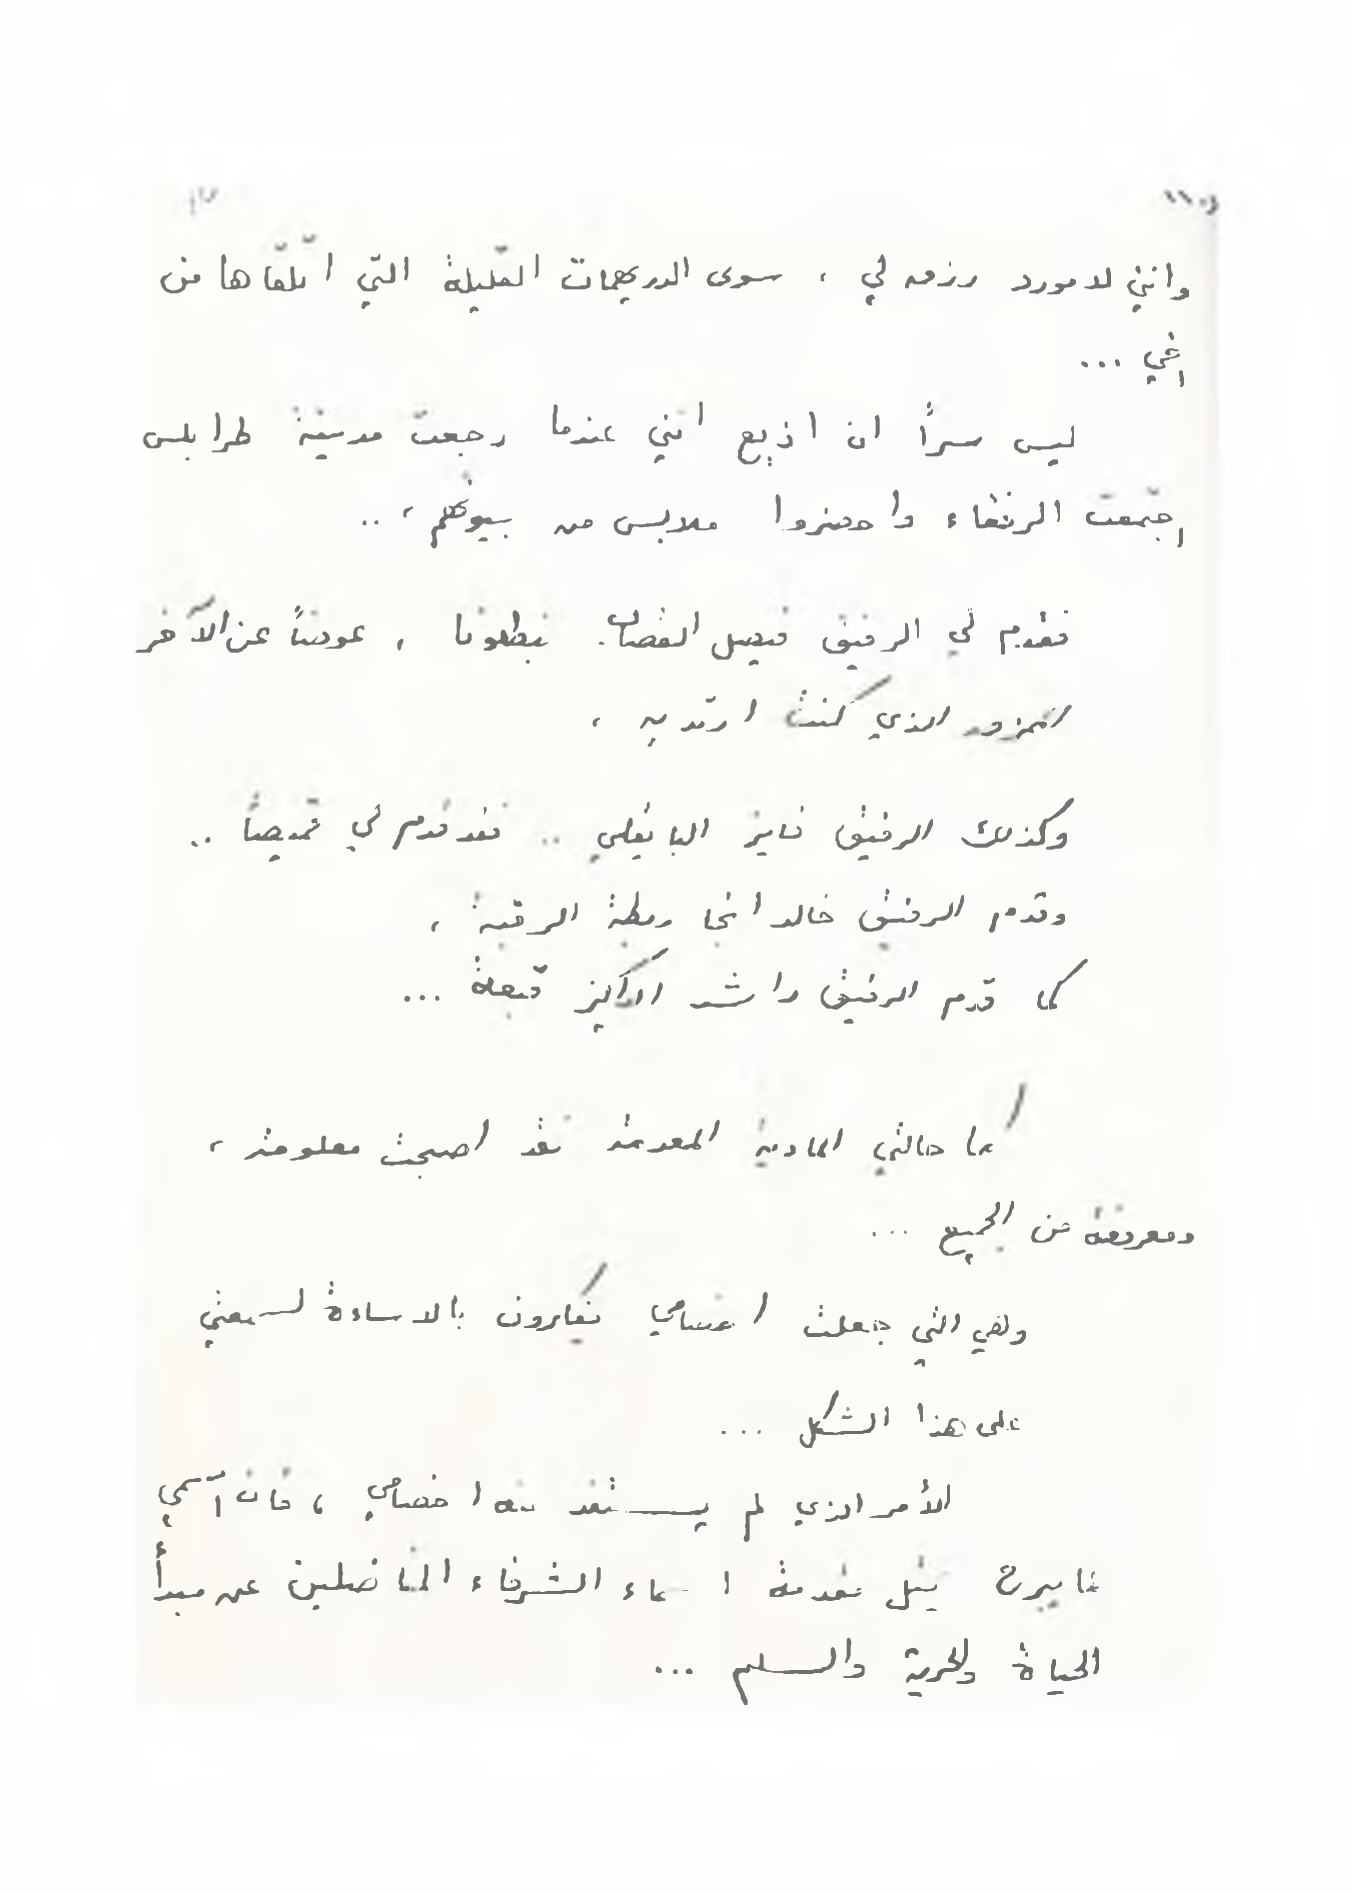 وانني لا مورد رزق لي ، سوى الدريهمات القليلة التي اتلقّاها من
اخي ...
ليس سراً ان اذيع انني عندما رجعت مدينة طرابلس
اجتمعت الرفقاء واحضروا ملابس من بيوتهم ، ..
فقدم لي الرفيق فيصل القصاب . بنطلونا ، عوضاً عن الآخر
المهزور الذي كنت ارتديه ،
وكذلك الرفيق فايز .. فقد قدم لي قميصاً ..
وقدم الرفيق خالد ربطة الرقبة ،
كما قدم الرفيق راشد قبعة ...
أما حالتي المادية المعدمة فقد اصبحت معلومة ،
ومعروفة من الجميع ...
وهي التي جعلت اخصامي يفكرون بالاساءة لسمعتي
على هذا الشكل ...
الأمر الذي لم يستفد منه اخصامي ، فان اسمي
مابرح بمقدمة اسماء الشرفاء المناضلين عن مبدأ
الحياة والحرية والسلم ...